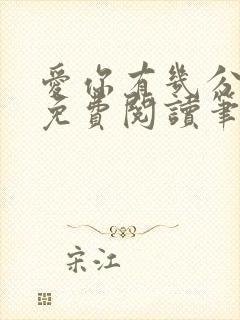 愛你有幾分
免費閱讀筆
宋江